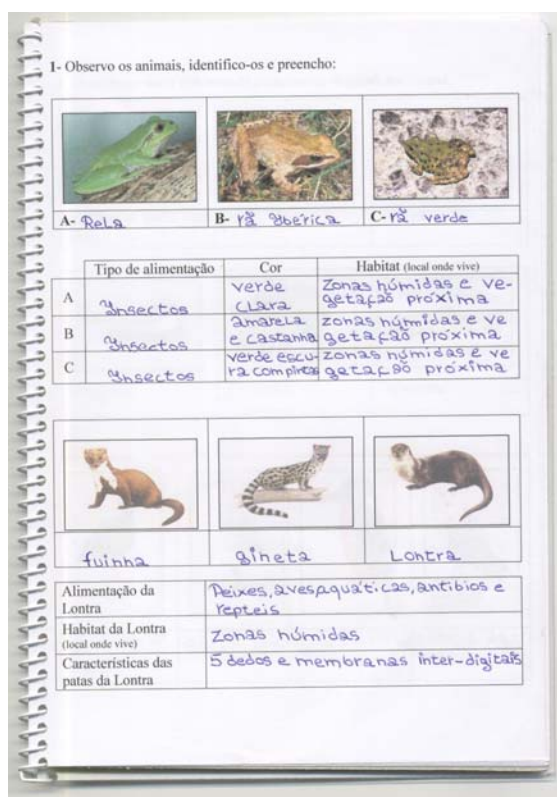 1- Observo os animais, identifico-os e preencho:
A- Rela B- rã Yberica C- rã verde
Tipo de alimentação Cor Habitat (local onde vive)
A Ynsectos verde clara zonas húmidas e ve-
getação próxima
B Ynsectos amarela e castanha zonas húmidas e ve
getação próxima
C Ynsectos verde escu-
ra com pintas zonas húmidas e ve
getação próxima
fuinha gineta Lontra
Alimentação da Lontra Peixes, aves aquáticas, antibios e
repteis
Habitat da Lontra
(local onde vive) Zonas húmidas
Características das
patas da Lontra 5 dedos e membranas inter-digitais